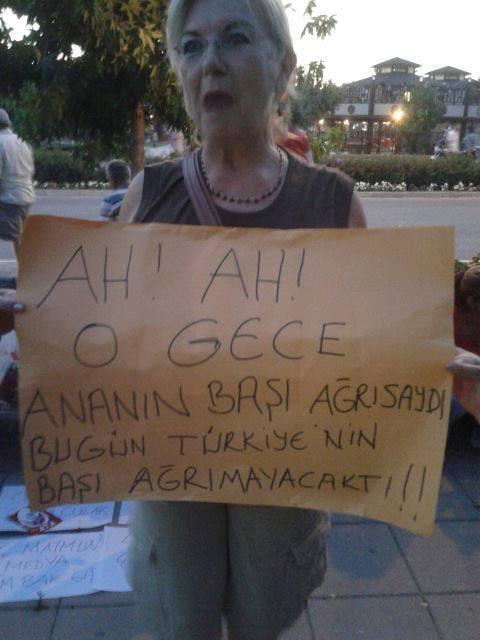 AH! AH!
O GECE
ANANIN BAŞI AĞRISAYDI
BUGÜN TÜRKİYE'NİN
BAŞI AĞRIMAYACAKTI!!!
CULAR
MAYMUN
MEDYA
BAK GIT